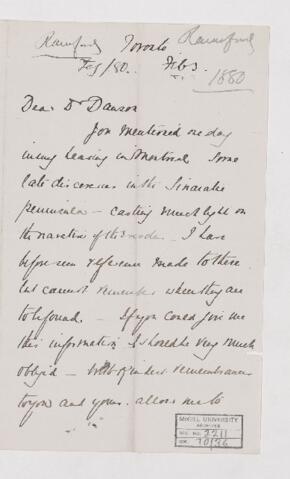 Rainsford Toronto Rainsford
Feb/80. Feb 3.
1880
Dear Dr Dawson
You mentioned one day
in my hearing in Montreal some
late discoveries in the Sinaitic
peninsula – casting much light on
the narrative of the Exodus – I have
before seen reference made to these
but cannot remember where they are
to be found. – If you could give me
this information I should be very much
obliged – With kindest remembrances
to you and yours allow me to
McGILL UNIVERSITY
ARCHIVES
ACC. NO. 2211
REF.